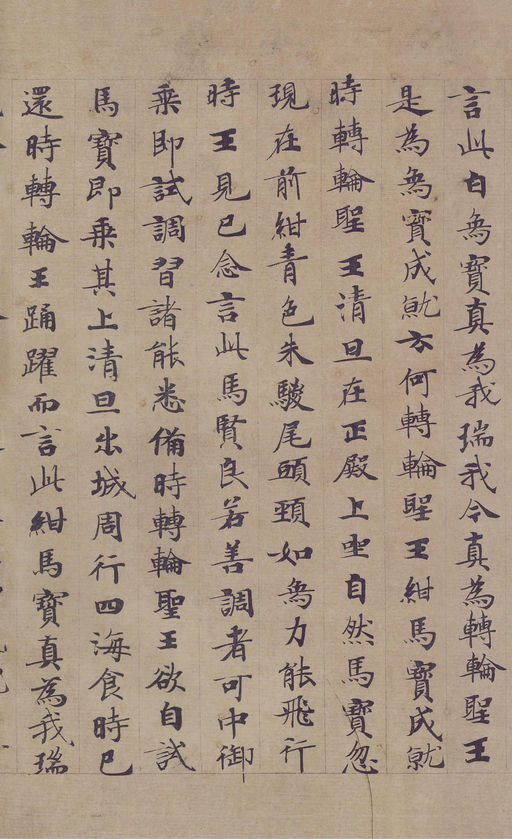 言此白象寶真為我瑞我今真為轉輪聖王
是為象寶成就云何轉輪聖王紺馬寶成就
時轉輪聖王清旦在正殿上坐自然馬寶忽
現在前紺青色朱駿尾頭頸如象力能飛行
時王見已念言此馬賢良若善調者可中御
乗即試調習諸能悉備時轉輪聖王欲自試
馬寶即乗其上清旦出城周行四海食時已
還時轉輪王踊躍而言此紺馬寶真為我瑞